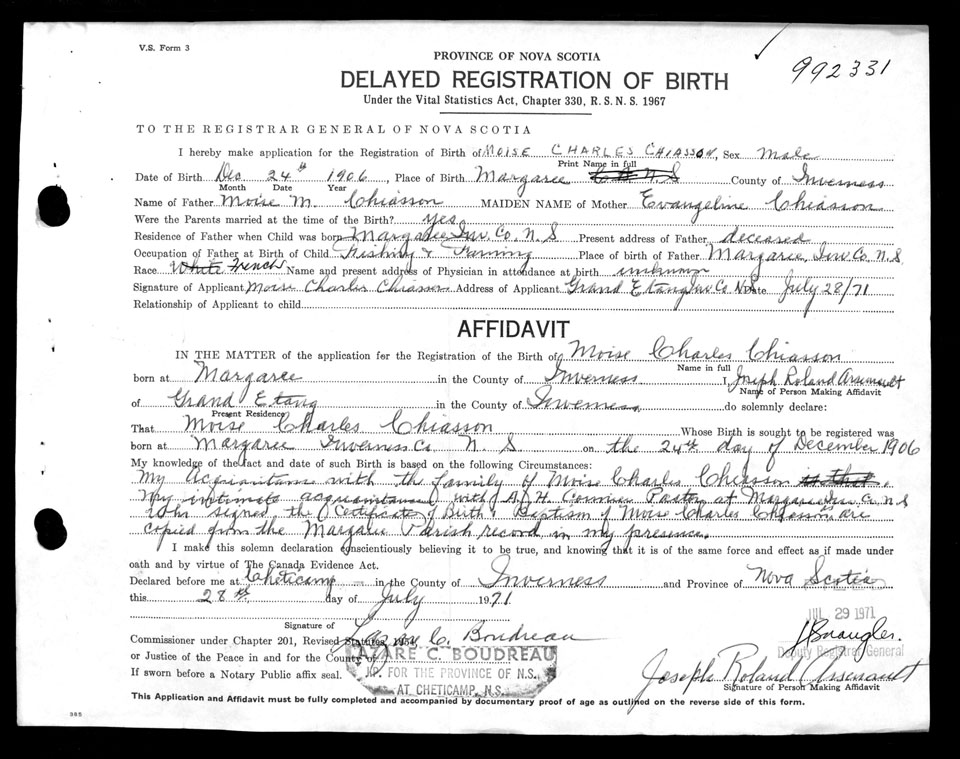 V.S. Form 3
992331
PROVINCE OF NOVA SCOTIA
DELAYED REGISTRATION OF BIRTH
Under the Vital Statistics Act, Chapter 330, R.S.N.S. 1967
TO THE REGISTRAR GENERAL OF NOVA SCOTIA
I hereby make application for the Registration of Birth of MOISE CHARLES CHIASSON, Sex Male
Print Name in full
Date of Birth Dec 24th 1906, Place of Birth Margaree N.S County of Inverness
Month Date Year
Name of Father Moise M. Chiasson MAIDEN NAME of Mother Evangeline Chiasson
Were the Parents married at the time of the Birth? yes
Residence of Father when Child was born Margaree Inv. Co. N.S Present address of Father deceased
Occupation of Father at Birth of Child Fishing & Farming Place of birth of Father Margaree, Inv Co. N.S.
Race White French Name and present address of Physician in attendance at birth unknown
Signature of Applicant Moise Charles Chiasson Address of Applicant Grand Etang Inv Co N.S Date July 28/71
Relationship of Applicant to child
AFFIDAVIT
IN THE MATTER of the application for the Registration of the Birth of Moise Charles Chiasson
Name in full
born at Margaree in the County of Inverness I, Joseph Roland Arsenault
Name of Person Making Affidavit
of Grand Etang in the County of Inverness do solemnly declare:
Present Residence
That Moise Charles Chiasson Whose Birth is sought to be registered was
born at Margaree Inverness Co. N.S on the 24th day of December 1906
My knowledge of the fact and date of such Birth is based on the following Circumstances:
My Acquaintans with the family of Moise Charles Chiasson is that.
My intimate acquaintance with A.H. Cormier Pastor at Margaree Inv. Co. N.S
Who signed the Certificate of Birth & Baptism of Moise Charles Chiasson as are
copied from the Margaree Parish record in my presence.
I make this solemn declaration conscientiously believing it to be true, and knowing that it is of the same force and effect as if made under
oath and by virtue of The Canada Evidence Act.
Declared before me at Cheticamp in the County of Inverness and Province of Nova Scotia
this 28th day of July 1971
JUL 29 1971
Signature of
Commissioner under Chapter 201, Revised Statutes, 1954 Lazare C. Boudreau
or Justice of the Peace in and for the County of
Deputy Registrar General
LAZARE C. BOUDREAU
If sworn before a Notary Public affix seal.
J.P. FOR THE PROVINCE OF N.S.
AT CHETICAMP, N.S.
Joseph Roland Arsenault
Signature of Person Making Affidavit
This Application and Affidavit must be fully completed and accompanied by documentary proof of age as outlined on the reverse side of this form.